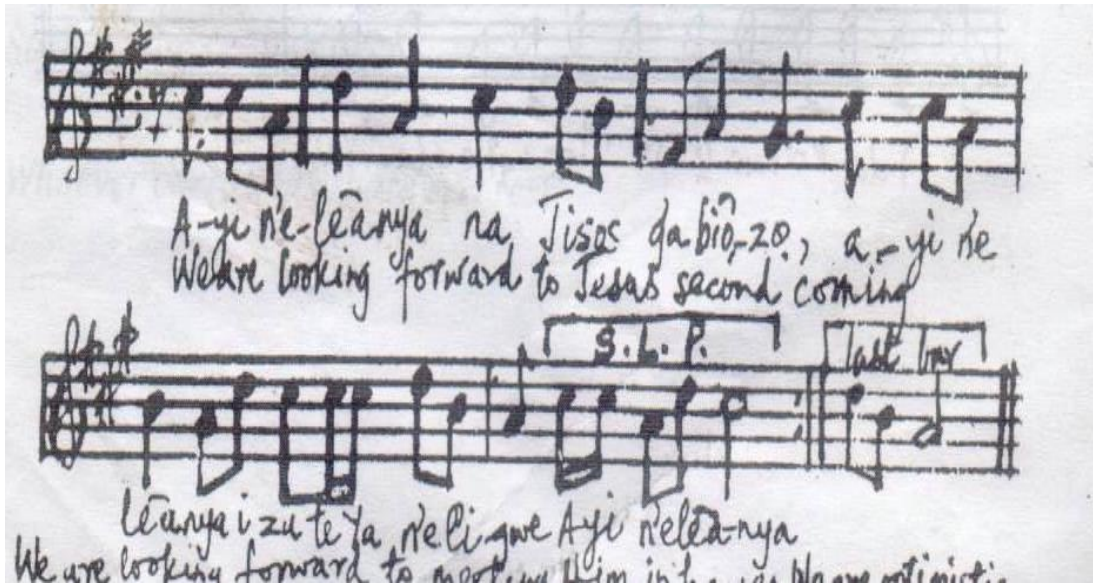 A-yi n'e-lēanya na Jisọs ga bịō-zọ, a-yi n'e
We are looking forward to Jesus second coming
S. L. P. last
lēanya i zu te Ya n'eli-gwe A-yi n'elēa-nya
We are looking forward to meeting Him in We are optimistic